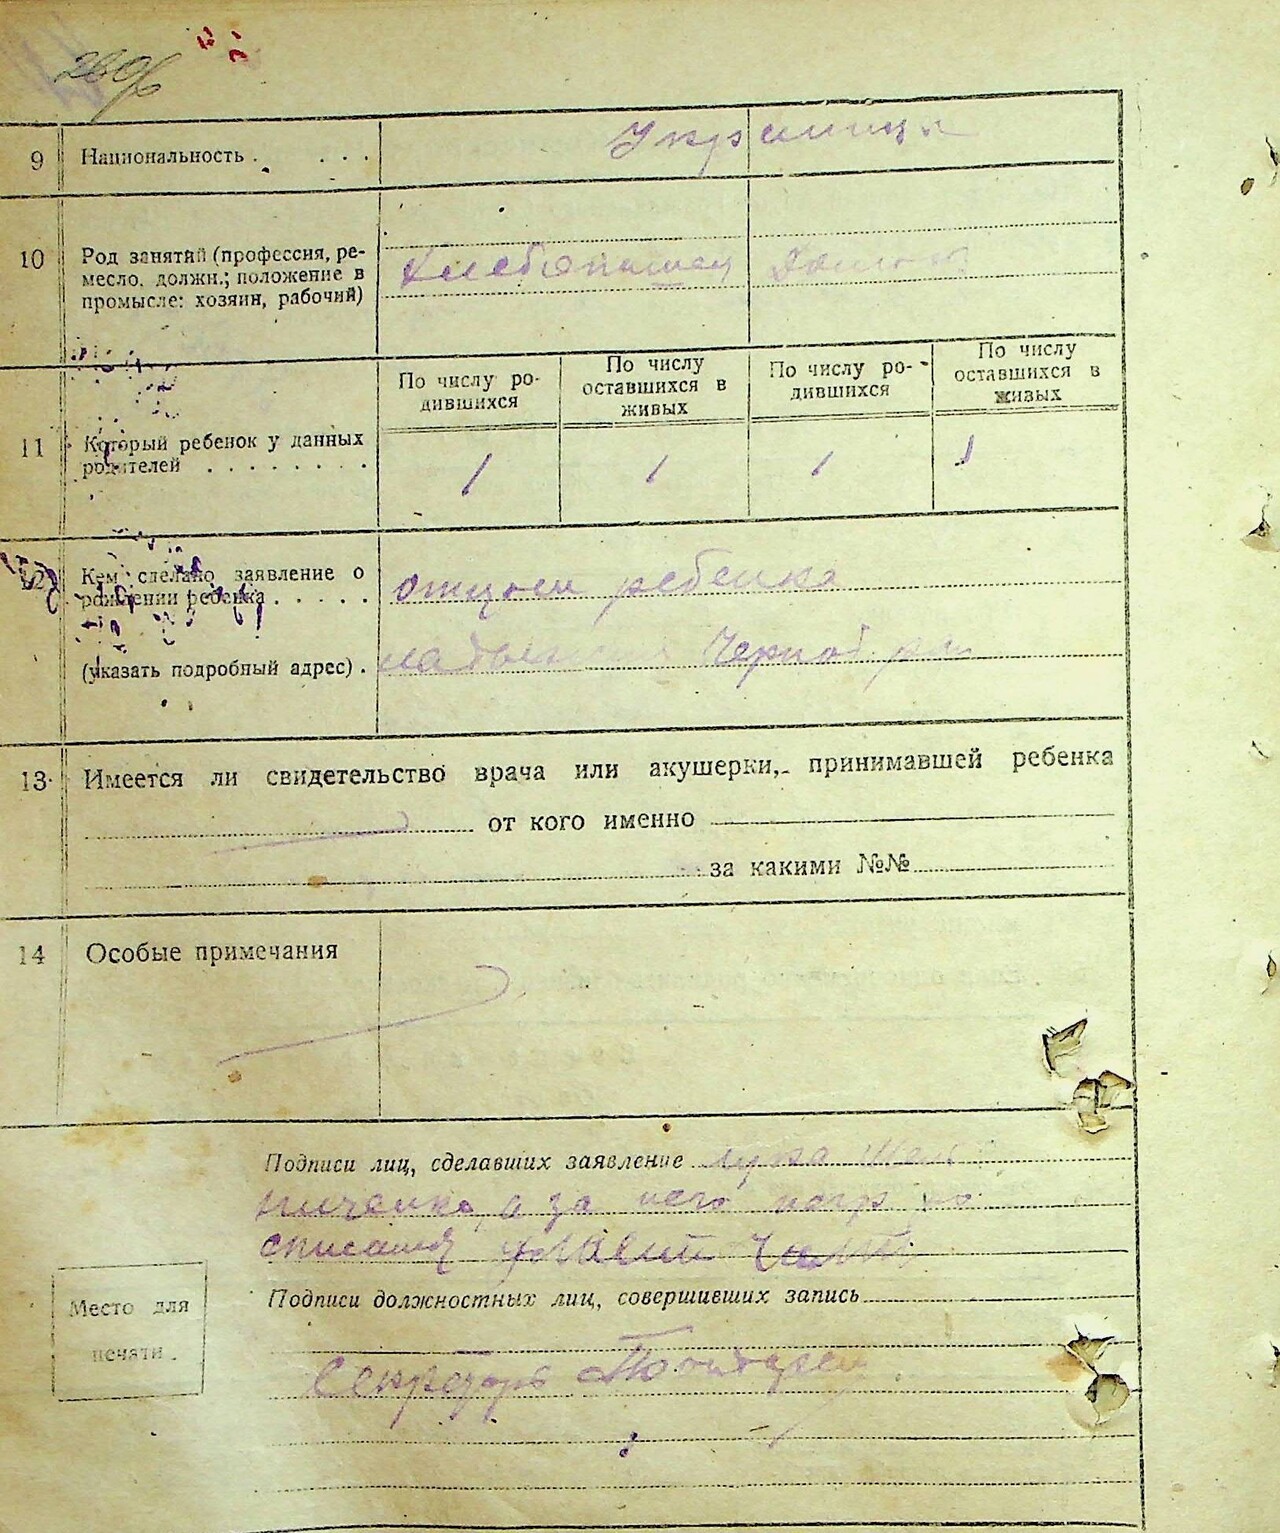 260
9 Национальность . . . .
Украинцы
10 Род занятий (профессия, ре-
месло, должн.; положение в
промысле: хозяин, рабочий)
Хлебопашец Домохоз.
По числу ро-
дившихся
По числу
оставшихся в
живых
По числу ро-
дившихся
По числу
оставшихся в
живых
11 Который ребенок у данных
родителей . . . . . . . .
1 1 1 1
12 Кем сделано заявление о
рождении ребенка . . . . .
отцом ребенка
(указать подробный адрес) .
Чернод. р-на
13 Имеется ли свидетельство врача или акушерки, принимавшей ребенка
от кого именно
за какими №№
14 Особые примечания
Подписи лиц, сделавших заявление Лука
ниченко, а за него негр. по
списался
Подписи должностных лиц, совершивших запись
Место для
печати.
Секретарь